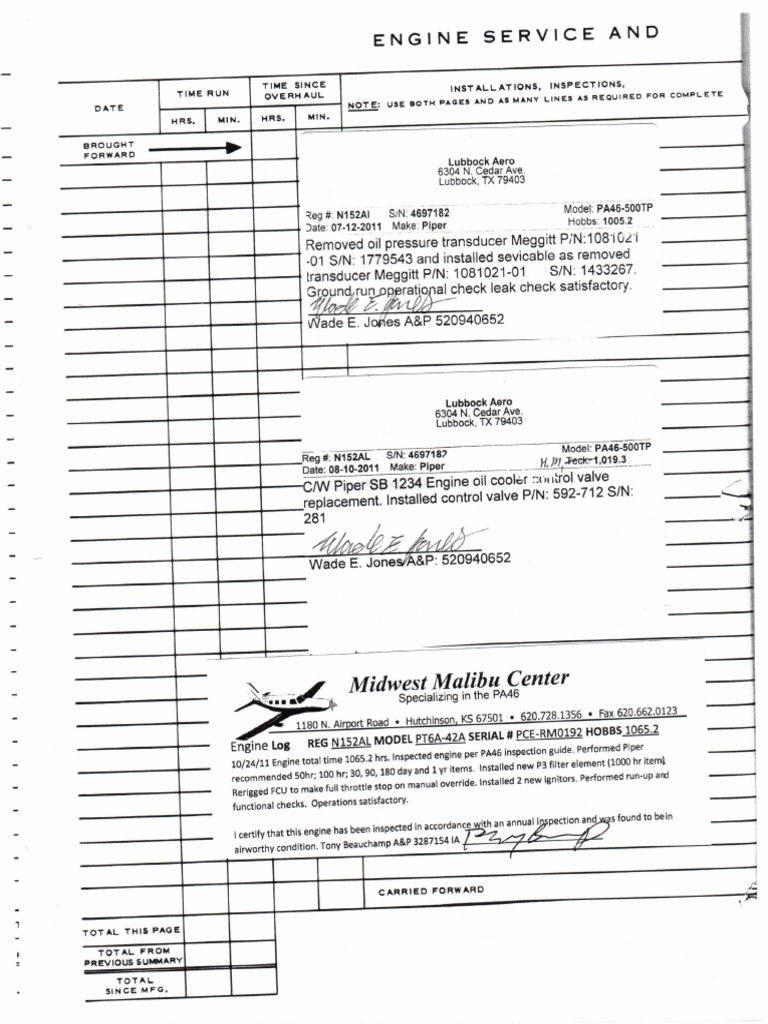 ENGINE SERVICE AND
DATE
TIME RUN
TIME SINCE
OVERHAUL
INSTALLATIONS, INSPECTIONS,
NOTE: USE BOTH PAGES AND AS MANY LINES AS REQUIRED FOR COMPLETE
HRS. MIN. HRS. MIN.
BROUGHT
FORWARD
Lubbock Aero
6304 N. Cedar Ave.
Lubbock, TX 79403
Reg #: N152AI S/N: 4697182 Model: PA46-500TP
Date: 07-12-2011 Make: Piper Hobbs: 1005.2
Removed oil pressure transducer Meggitt P/N:1081021
-01 S/N: 1779543 and installed sevicable as removed
transducer Meggitt P/N: 1081021-01 S/N: 1433267.
Ground run operational check leak check satisfactory.
Wade E. Jones
Wade E. Jones A&P 520940652
Lubbock Aero
6304 N. Cedar Ave.
Lubbock, TX 79403
Reg #: N152AL S/N: 4697182 Model: PA46-500TP
Date: 08-10-2011 Make: Piper H.M. Teck: 1,019.3
C/W Piper SB 1234 Engine oil cooler control valve
replacement. Installed control valve P/N: 592-712 S/N:
281
Wade E Jones
Wade E. Jones A&P: 520940652
Midwest Malibu Center
Specializing in the PA46
1180 N. Airport Road • Hutchinson, KS 67501 • 620.728.1356 • Fax 620.662.0123
Engine Log REG N152AL MODEL PT6A-42A SERIAL # PCE-RM0192 HOBBS 1065.2
10/24/11 Engine total time 1065.2 hrs. Inspected engine per PA46 inspection guide. Performed Piper
recommended 50hr; 100 hr; 30, 90, 180 day and 1 yr items. Installed new P3 filter element (1000 hr item)
Rerigged FCU to make full throttle stop on manual override. Installed 2 new ignitors. Performed run-up and
functional checks. Operations satisfactory.
I certify that this engine has been inspected in accordance with an annual inspection and was found to be in
airworthy condition. Tony Beauchamp A&P 3287154 IA
CARRIED FORWARD
TOTAL THIS PAGE
TOTAL FROM
PREVIOUS SUMMARY
TOTAL
SINCE MFG.